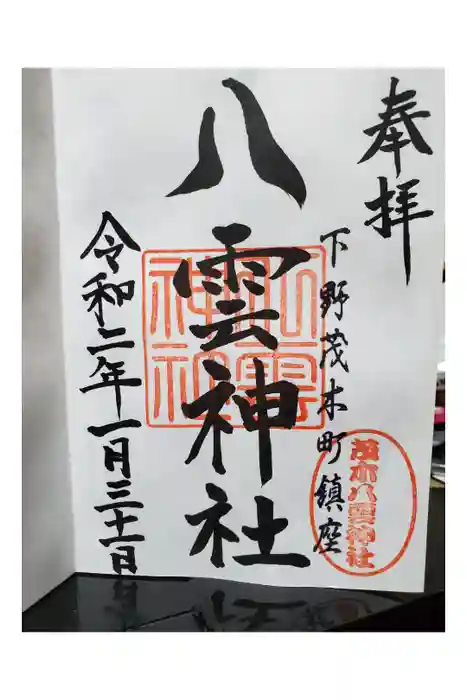 奉拝
下野茂木町鎮座
八雲神社
令和二年一月三十一日
八雲神社
茂木八雲神社